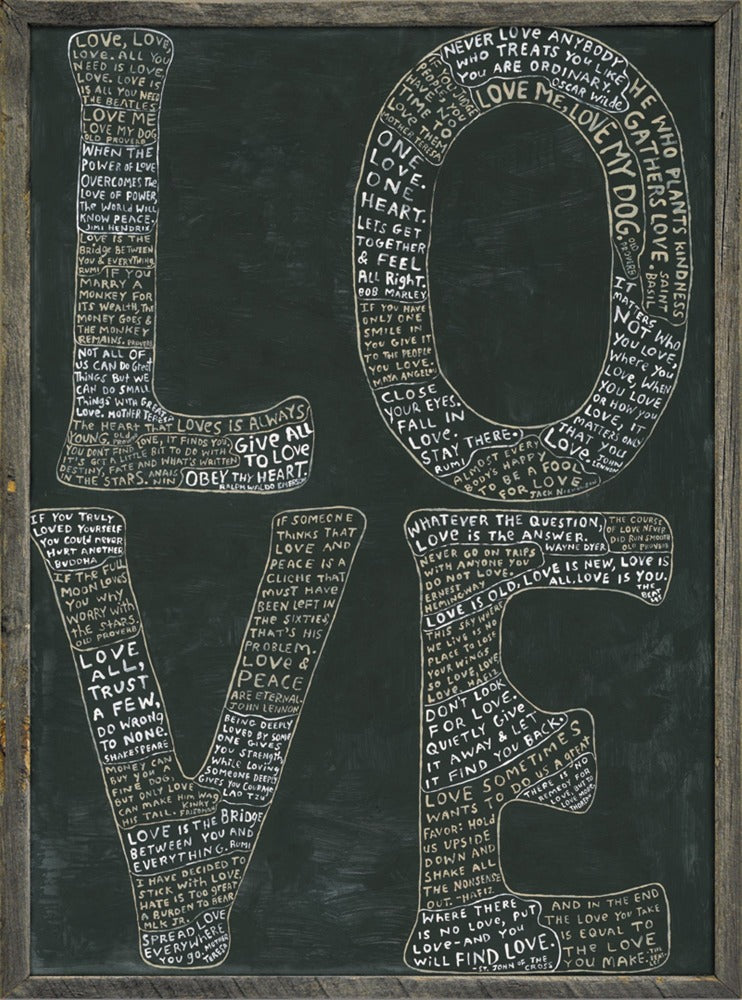 LOVE, LOVE,
LOVE. ALL YOU
NEED IS LOVE,
LOVE. LOVE IS
IS ALL YOU NEED
THE BEATLES
LOVE ME
LOVE MY DOG
OLD PROVERB
WHEN THE
POWER OF LOVE
OVERCOMES THE
LOVE OF POWER,
THE WORLD WILL
KNOW PEACE.
JIMI HENDRIX
LOVE IS THE
BRIDGE BETWEEN
YOU & EVERYTHING
RUMI
IF YOU
MARRY A
MONKEY FOR
ITS WEALTH, THE
MONEY GOES &
THE MONKEY
REMAINS. PROVERB
NOT ALL OF
US CAN DO GREAT
THINGS BUT WE
CAN DO SMALL
THINGS WITH GREAT
LOVE. MOTHER TERESA
THE HEART THAT LOVES IS ALWAYS
YOUNG. OLD PROV
YOU DON'T FIND LOVE, IT FINDS YOU.
IT'S GOT A LITTLE BIT TO DO WITH
DESTINY, FATE AND WHAT'S WRITTEN
IN THE STARS. ANAIS NIN
GIVE ALL
TO LOVE
OBEY THY HEART.
RALPH WALDO EMERSON
NEVER LOVE ANYBODY
WHO TREATS YOU LIKE
YOU ARE ORDINARY.
OSCAR WILDE
HE WHO PLANTS KINDNESS
GATHERS LOVE.
SAINT
BASIL
LOVE ME, LOVE MY DOG.
OLD
PROVERB
IF YOU JUDGE
PEOPLE, YOU
HAVE NO
TIME TO
LOVE THEM
MOTHER TERESA
ONE
LOVE.
ONE
HEART.
LETS GET
TOGETHER
& FEEL
ALL RIGHT.
BOB MARLEY
IF YOU HAVE
ONLY ONE
SMILE IN
YOU GIVE IT
TO THE PEOPLE
YOU LOVE.
MAYA ANGELOU
CLOSE
YOUR EYES.
FALL IN
LOVE.
STAY THERE.
RUMI
ALMOST EVERY
BODY'S HAPPY
TO BE A FOOL
FOR LOVE
JACK
IT
MATTERS
NOT WHO
YOU LOVE,
WHERE YOU
LOVE, WHEN
YOU LOVE
OR HOW YOU
LOVE, IT
MATTERS ONLY
THAT YOU
LOVE. JOHN
LENNON
IF YOU TRULY
LOVED YOURSELF
YOU COULD NEVER
HURT ANOTHER
BUDDHA
IF THE FULL
MOON LOVES
YOU WHY
WORRY WITH
THE STARS.
OLD PROVERB
LOVE
ALL,
TRUST
A FEW,
DO WRONG
TO NONE.
SHAKESPEARE
MONEY CAN
BUY YOU A
FINE DOG,
BUT ONLY LOVE
CAN MAKE HIM WAG
HIS TAIL. KINKY
FRIEDMAN
LOVE IS THE BRIDGE
BETWEEN YOU AND
EVERYTHING. RUMI
I HAVE DECIDED TO
STICK WITH LOVE.
HATE IS TOO GREAT
A BURDEN TO BEAR
MLK JR.
SPREAD LOVE
EVERYWHERE
YOU GO. MOTHER
TERESA
IF SOMEONE
THINKS THAT
LOVE AND
PEACE IS A
CLICHE THAT
MUST HAVE
BEEN LEFT IN
THE SIXTIES,
THAT'S HIS
PROBLEM.
LOVE &
PEACE
ARE ETERNAL
JOHN LENNON
BEING DEEPLY
LOVED BY SOME
ONE GIVES
YOU STRENGTH
WHILE LOVING
SOMEONE DEEPLY
GIVES YOU COURAGE
LAO TZU
WHATEVER THE QUESTION,
LOVE IS THE ANSWER.
WAYNE DYER
THE COURSE
OF LOVE NEVER
DID RUN SMOOTH
OLD PROVERB
NEVER GO ON TRIPS
WITH ANYONE YOU
DO NOT LOVE.
ERNEST
HEMINGWAY
LOVE IS OLD, LOVE IS NEW, LOVE IS
ALL. LOVE IS YOU.
THE
BEAT
LES
THIS SKY WHERE
WE LIVE IS NO
PLACE TO LOSE
YOUR WINGS
SO LOVE, LOVE,
LOVE. HAFIZ
DON'T LOOK
FOR LOVE.
QUIETLY GIVE
IT AWAY & LET
IT FIND YOU BACK.
LOVE SOMETIMES
WANTS TO DO US A GREAT
FAVOR: HOLD
US UPSIDE
DOWN AND
SHAKE ALL
THE NONSENSE
OUT. -HAFIZ
THERE IS NO
REMEDY FOR
LOVE, BUT TO
LOVE MORE.
THOREAU
WHERE THERE
IS NO LOVE, PUT
LOVE-AND YOU
WILL FIND LOVE.
-ST. JOHN OF THE
CROSS
AND IN THE END
THE LOVE YOU TAKE
IS EQUAL TO
THE LOVE
YOU MAKE. -THE